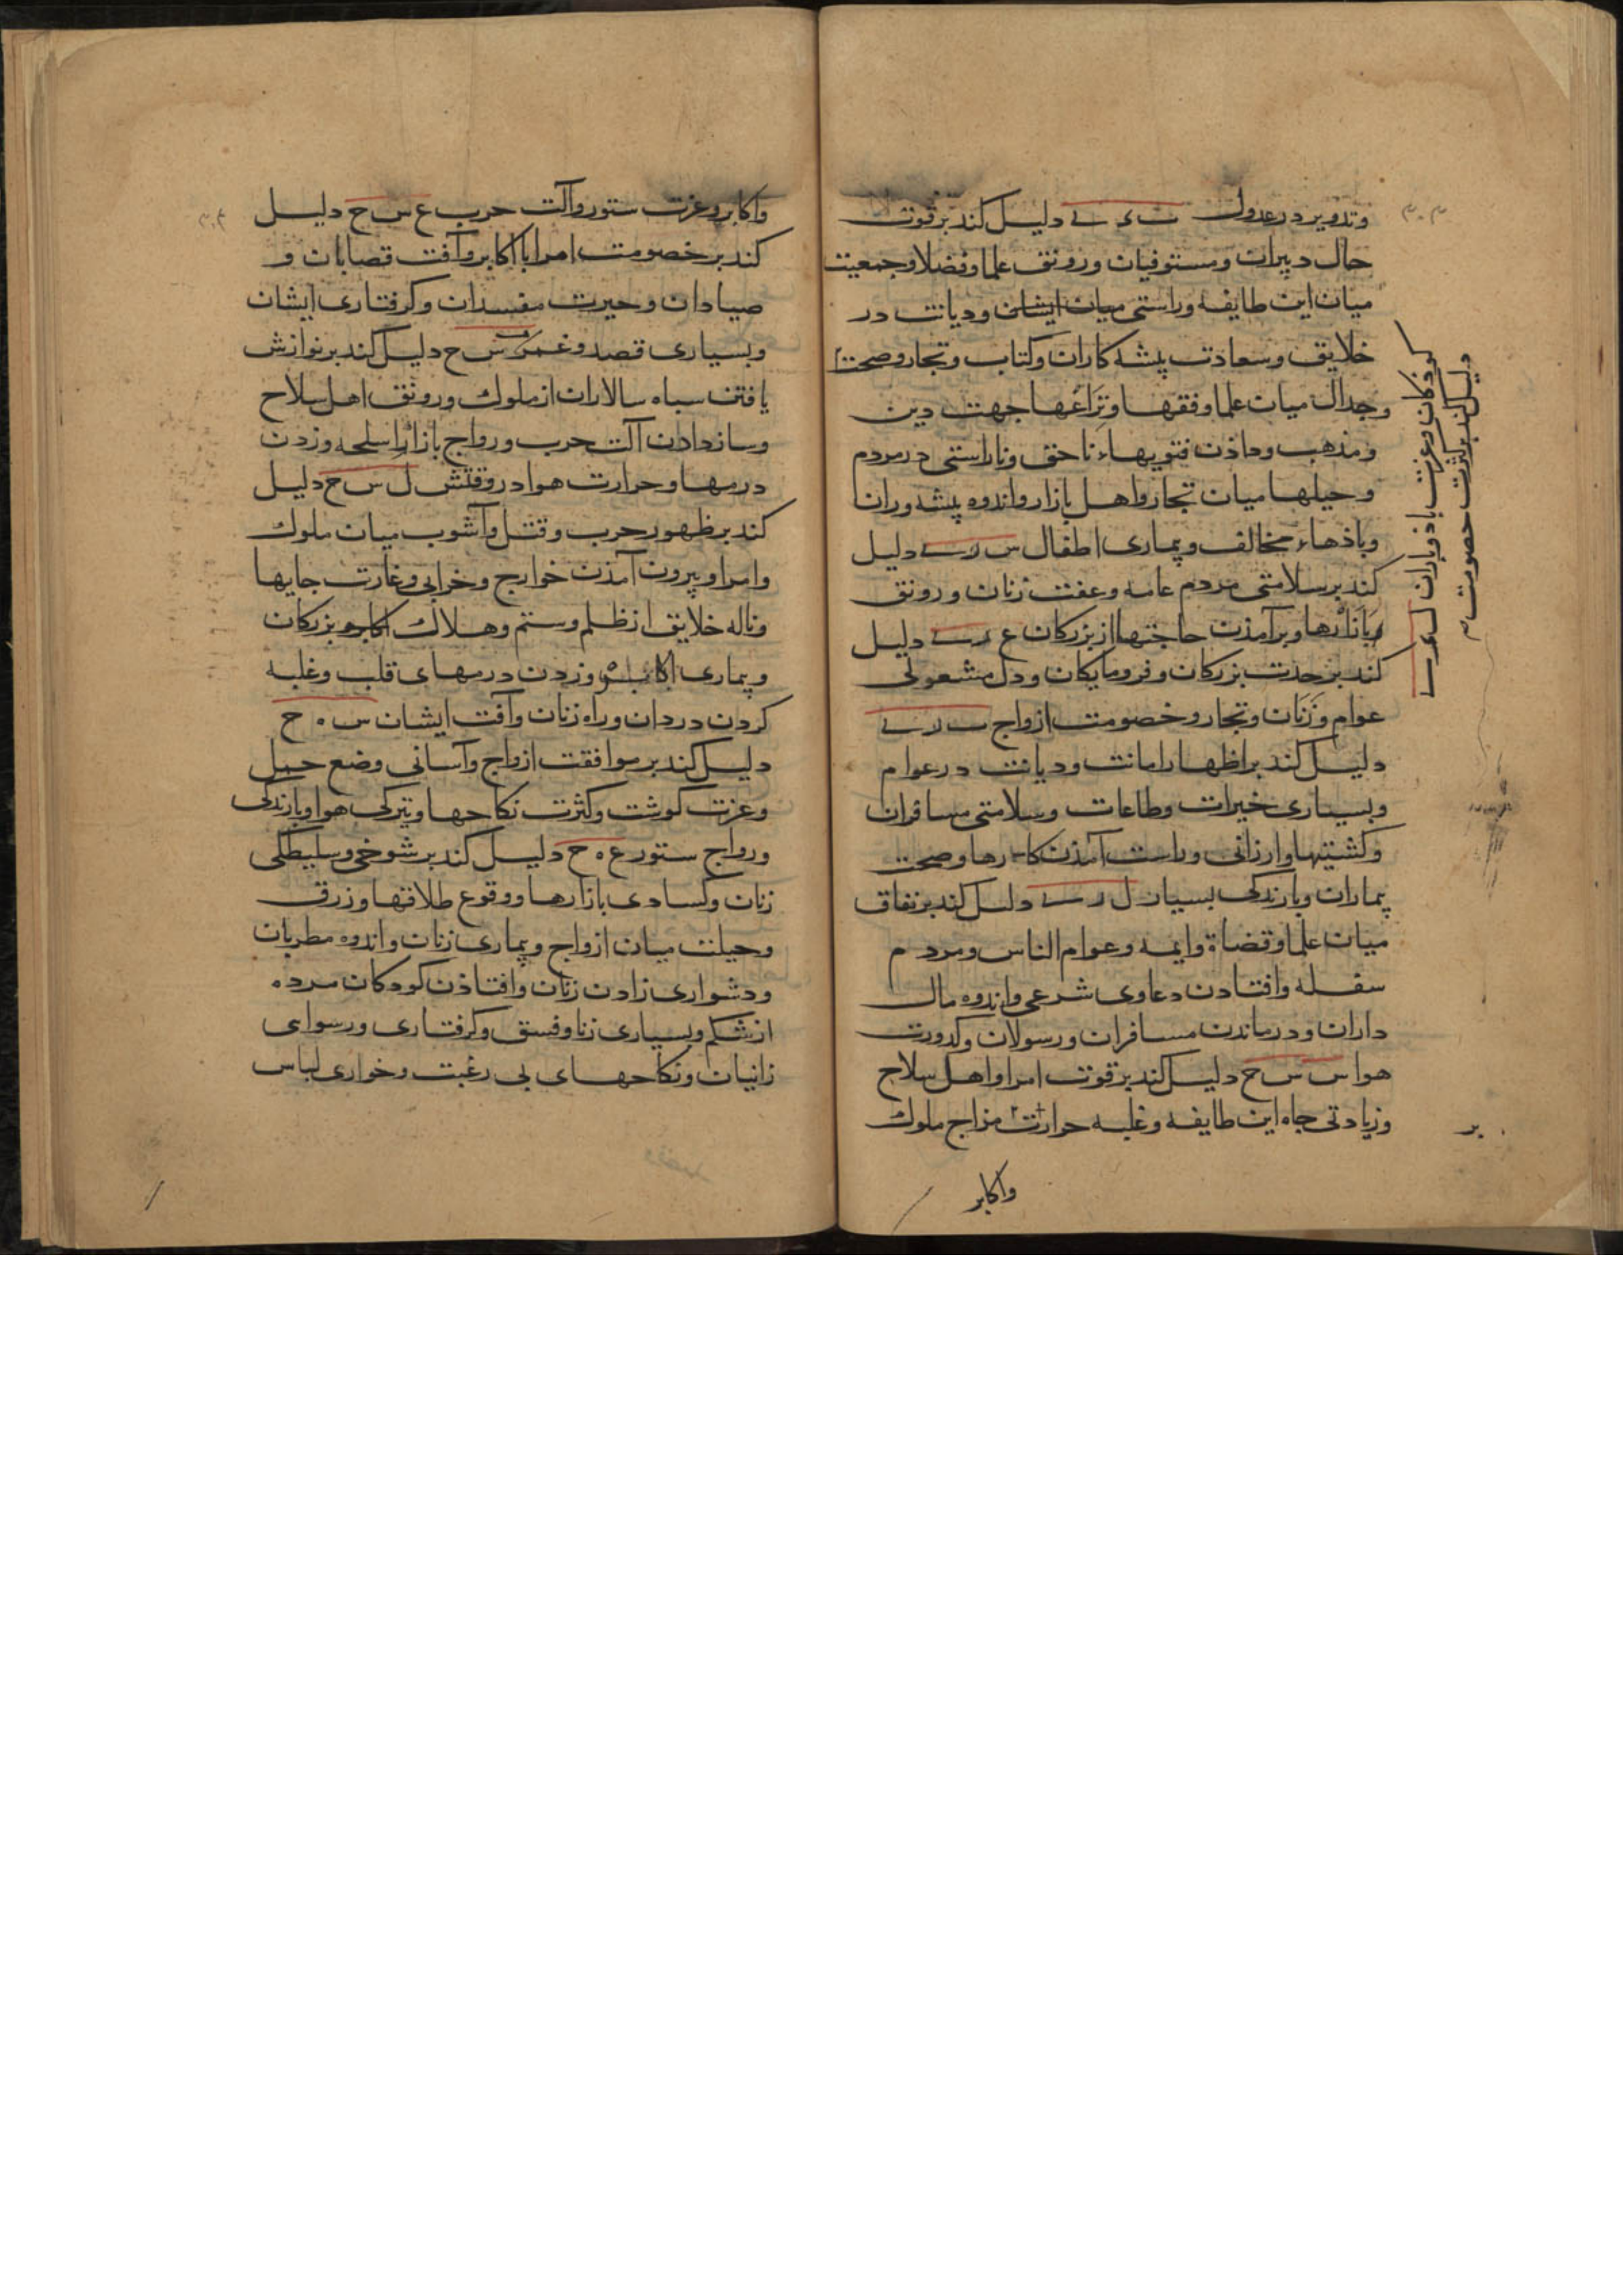 وتدویر در عدول ث ی ی دلیل کند بر قوت
حال دبیران ومستوفیان ورونق علما وفضلا وجمعیت
میان این طایفه وراستی میان ایشان ودیانت در
خلایق وسعادت پیشه کاران وکتاب وتجار وصحت
وجدال میان علما وفقها ونزاعها جهت دین
ومذهب وداذن فتویهاء ناحق وناراستی در مردم
وحیلها میان تجار واهل بازار واندوه پیشه وران
وباذهاء مخالف وبیماری اطفال س ر دلیل
کند بر سلامتی مردم عامه وعفت زنان ورونق
بازارها وبرآمذن حاجتها از بزرکان ع ر دلیل
کند بر حدت بزرکان وفرومایکان ودل مشعولی
عوام وزنان وتجار وخصومت ازواج ر
دلیل کند بر اظهار امانت ودیانت در عوام
وبسیاری خیرات وطاعات وسلامتی مسافران
وکشتیها وارزانی وراست آمذن کارها وصحت
بیماران وبارندکی بسیار ل ر دلیل کند بر نفاق
میان علما وقضاة وایمه وعوام الناس ومردم
سفله وافتادن دعاوی شرعی واندوه مال
داران ودرماندن مسافران ورسولان وکدورت
هوا س س ح دلیل کند بر قوت امرا واهل سلاح
وزیادتی جاه این طایفه وغلبه حرارت مزاج ملوک
واکابر
کوذکان وعزت باذ وباران ل
دلیل کند بر کثرت خصومت
بر
واکابر وعزت ستور وآلت حرب ع س ح دلیل
کند بر خصومت امرا با اکابر وآفت قصابان و
صیادان وحیرت مفسدان وکرفتاری ایشان
وبسیاری قصد وغمز س ح دلیل کند بر نوازش
یافتن سپاه سالاران از ملوک ورونق اهل سلاح
وساز دادن آلت حرب ورواج بازار اسلحه وزدن
درمها وحرارت هوا در وقتش ل س ح دلیل
کند بر ظهور حرب وقتل وآشوب میان ملوک
وامرا وبیرون آمذن خوارج وخرابی وغارت جایها
وناله خلایق از ظلم وستم وهلاک اکابر بزرکان
وبیماری وزدن درمهای قلب وغلبه
کردن دزدان وراه زنان وآفت ایشان س ه ح
دلیل کند بر موافقت ازواج وآسانی وضع حمل
وعزت کوشت وکثرت نکاحها وتیرکی هوا وبارندکی
ورواج ستور ع ه ح دلیل کند بر شوخی وسلیطکی
زنان وکسادی بازارها ووقوع طلاقها وزرق
وحیلت میان ازواج وبیماری زنان واندوه مطربان
ودشواری زادن زنان وافتاذن کودکان مرده
از شکم وبسیاری زنا وفسق وکرفتاری ورسوایی
زانیان ونکاحهای بی رغبت وخواری لباس